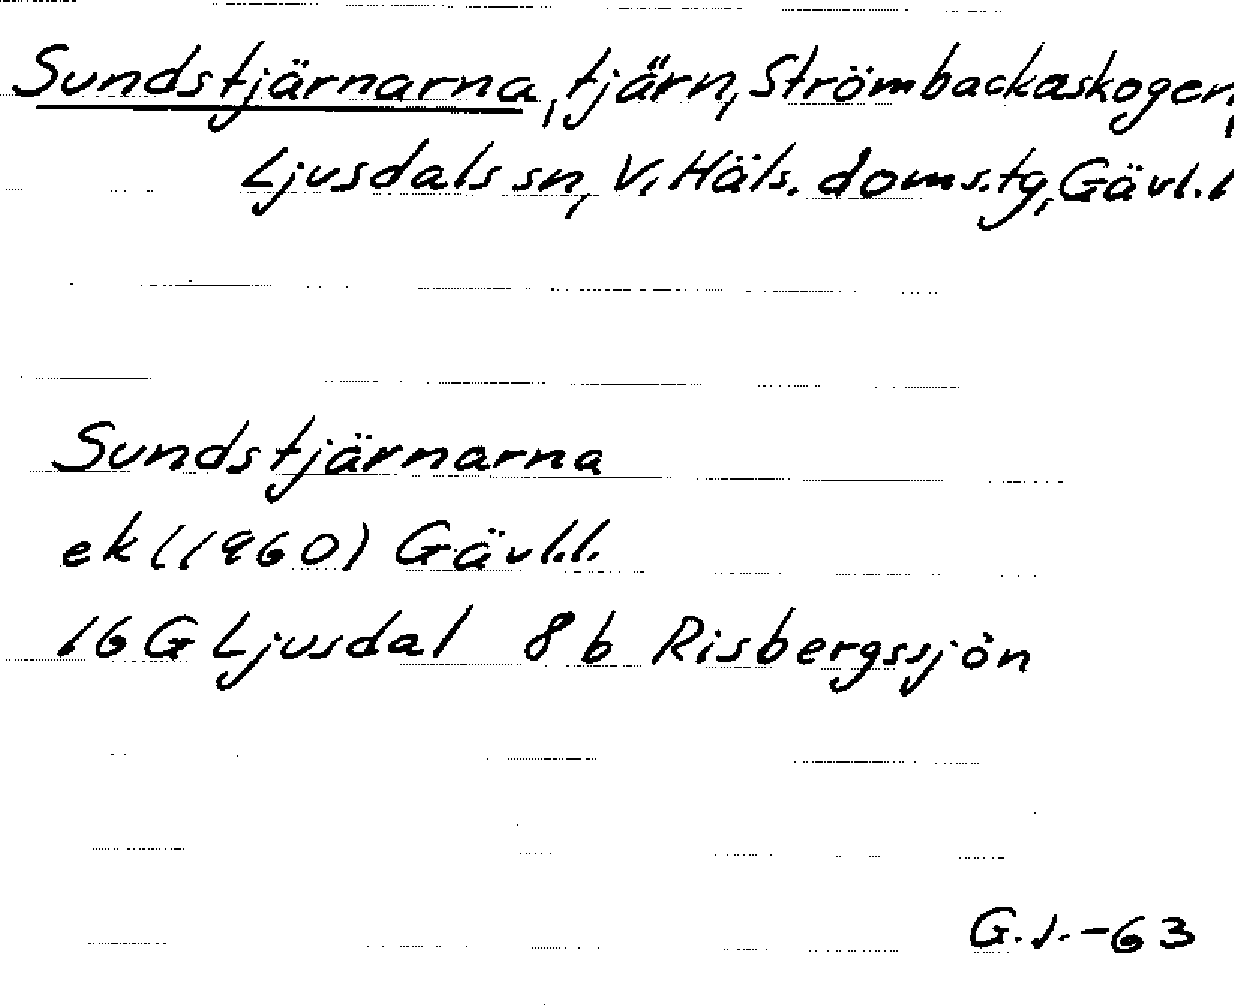 Sundstjärnarna, tjärn, Strömbackaskogen,
Ljusdals sn, V. Häls. doms.tg, Gävl.l
Sundstjärnarna
ek (1960) Gävl.l.
16 G Ljusdal 8 b Risbergssjön
G.J.-63